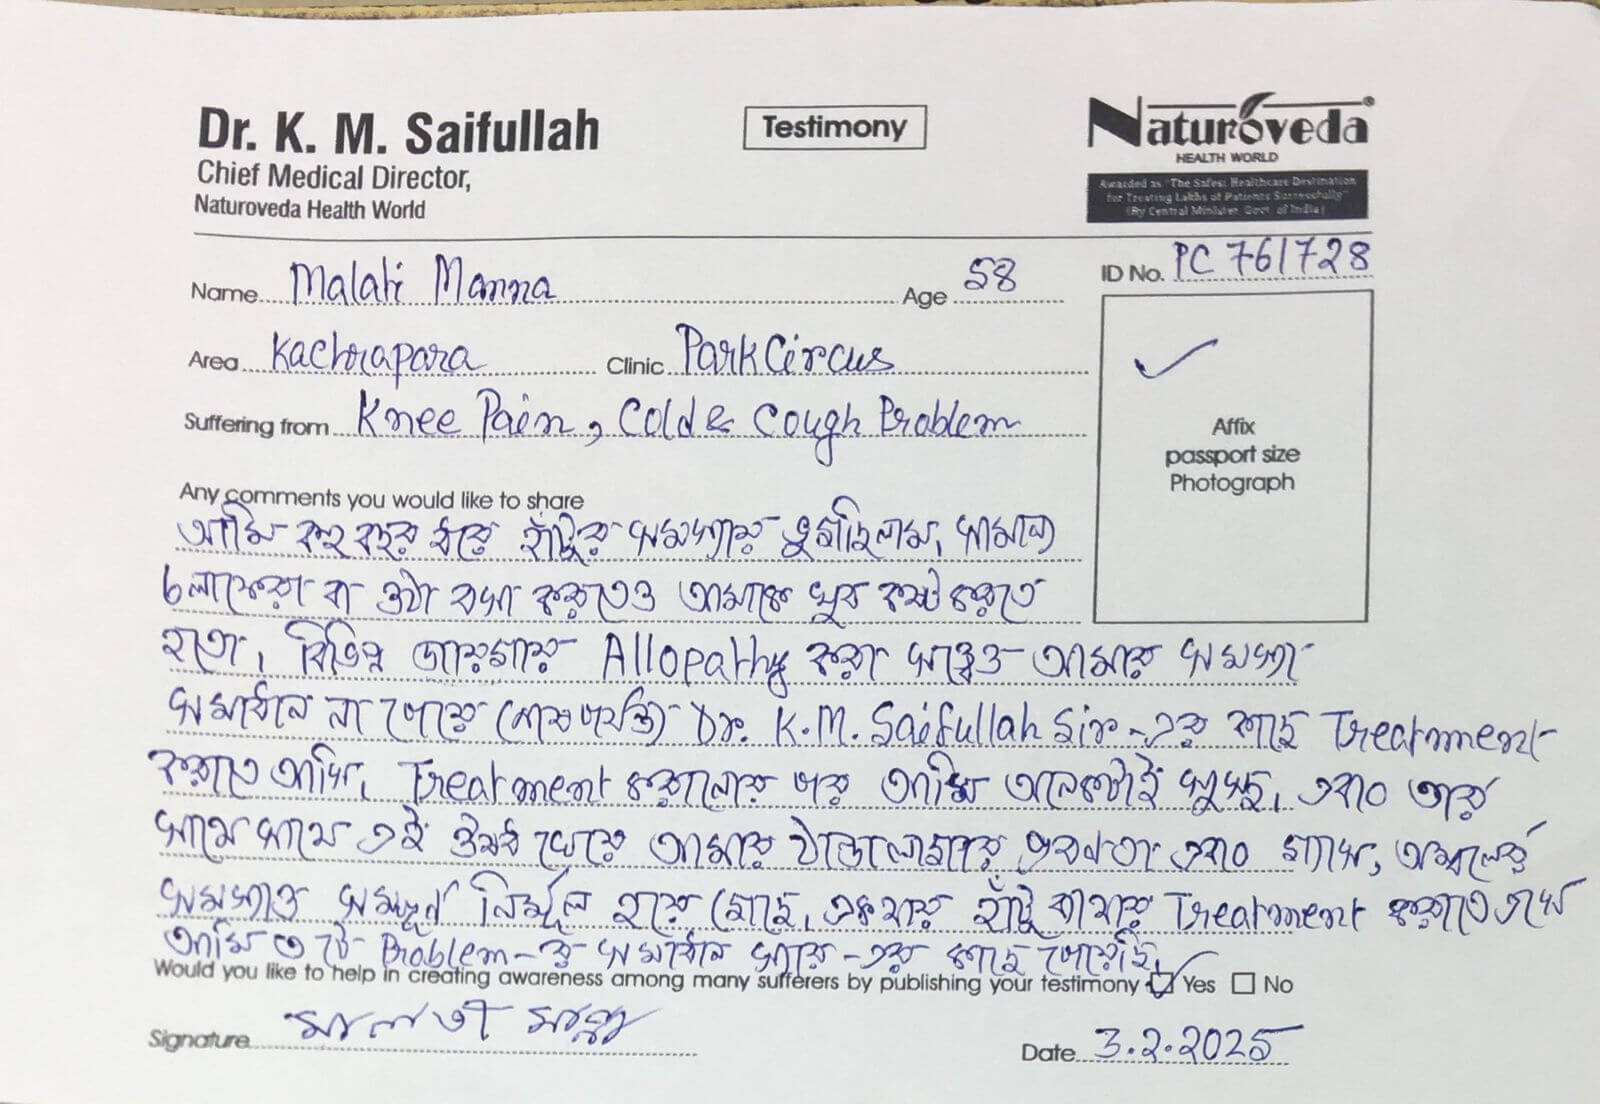 Dr. K. M. Saifullah
Chief Medical Director,
Naturoveda Health World
Testimony
Naturoveda®
HEALTH WORLD
Awarded as "The Safest Healthcare Destination
for Treating Lakhs of Patients Successfully"
(By Central Minister, Govt. of India)
Name Malati Manna Age 58 ID No. PC 761728
Area Kachrapara Clinic Park Circus
Suffering from Knee Pain, Cold & Cough Problem
Affix
passport size
Photograph
Any comments you would like to share
আমি বহু বছর ধরে হাঁটুর সমস্যায় ভুগছিলাম, সামান্য
চলাফেরা বা ওঠা বসা করতেও আমাকে খুব কষ্ট করতে
হতো, বিভিন্ন জায়গায় Allopathy করা সত্ত্বেও আমার সমস্যা
সমাধান না পেয়ে শেষপর্যন্ত Dr. K.M. Saifullah Sir-এর কাছে Treatment
করাতে আসি, Treatment করানোর পর আমি অনেকটাই সুস্থ, এবং তার
সাথে সাথে এই ঔষধ খেয়ে আমার ঠান্ডালাগার প্রবণতা এবং গ্যাস, অম্বলের
সমস্যাও সম্পূর্ণ নির্মূল হয়ে গেছে, একমাত্র হাঁটু ব্যথার Treatment করাতে এসে
আমি Problem-র সমাধান স্যারে-এর কাছে পেয়েছি,
Would you like to help in creating awareness among many sufferers by publishing your testimony Yes No
Signature মালতী মান্না Date 3.2.2025